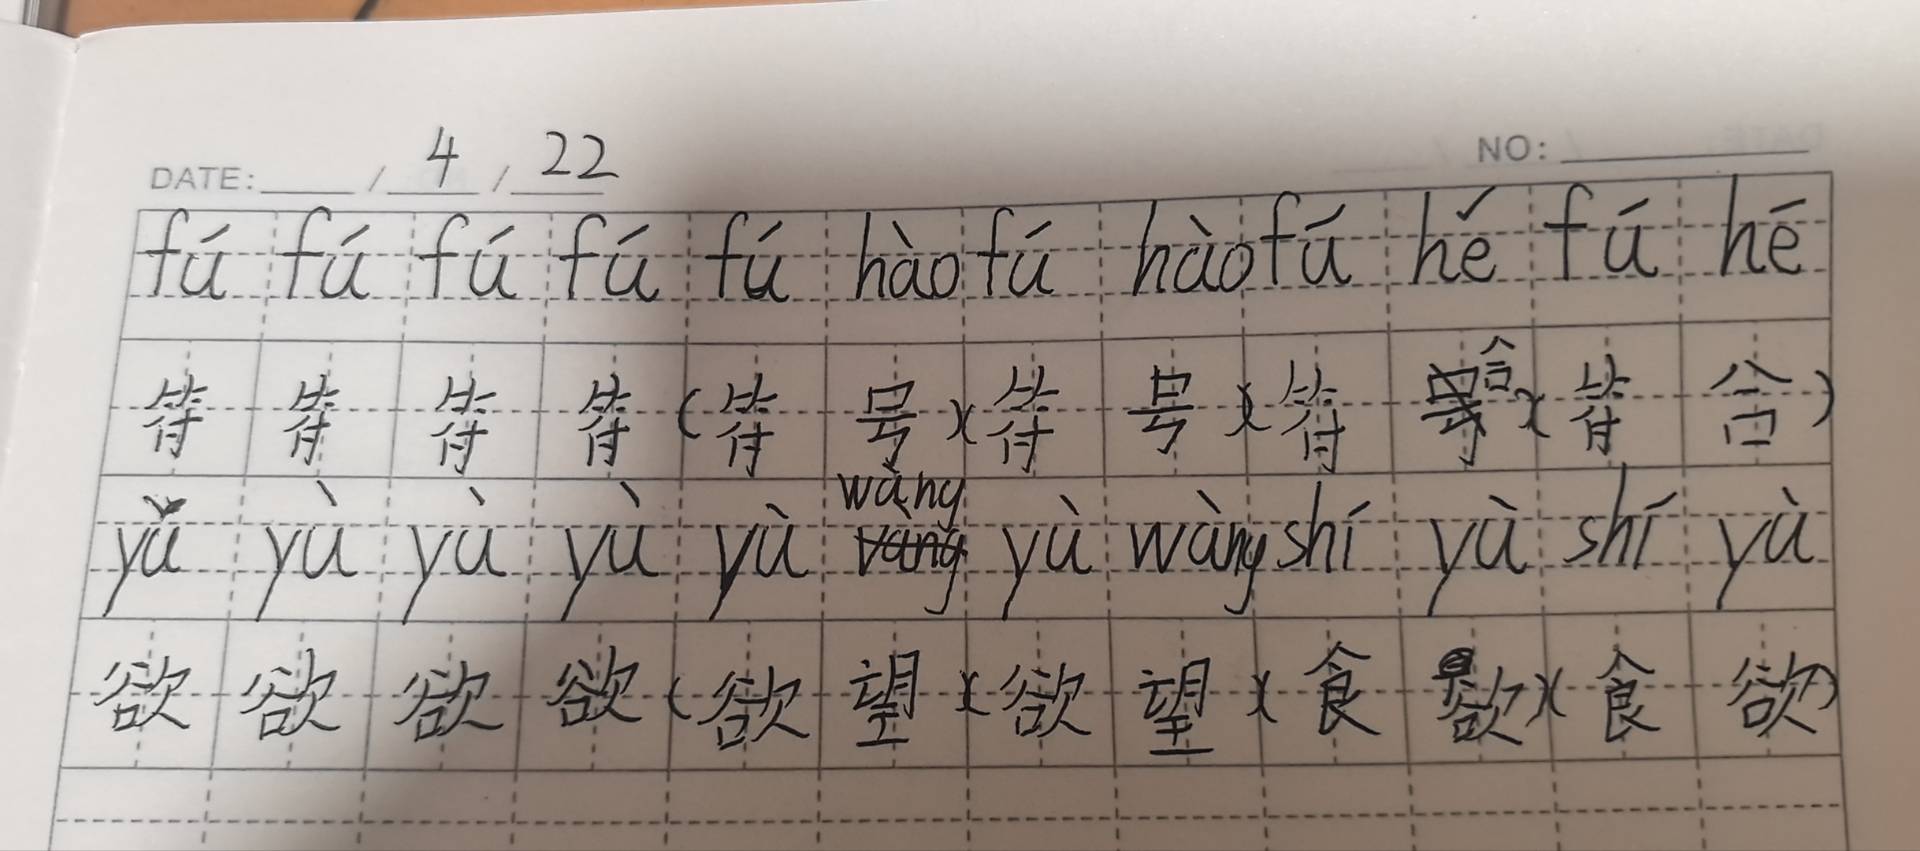 DATE: / 4 / 22 NO:
fú fú fú fú fú hào fú hào fú hé fú hé
符 符 符 符 (符 号)(符 号)(符 合)(符 合)
yù yù yù yù yù wàng yù wàng shí yù shí yù
欲 欲 欲 欲 (欲 望)(欲 望)(食 欲)(食 欲)